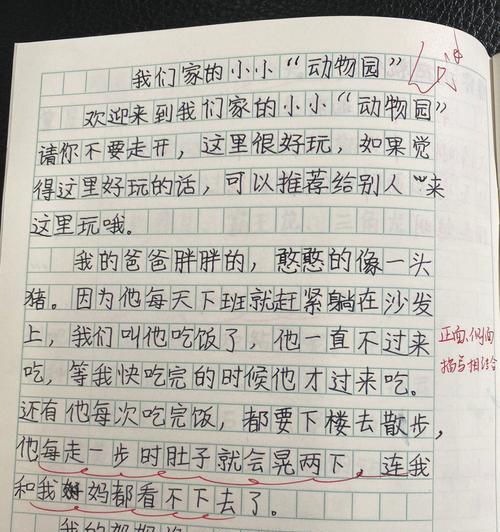 我们家的小小“动物园”
欢迎来到我们家的小小“动物园”
请你不要走开，这里很好玩，如果觉
得这里好玩的话，可以推荐给别人来
这里玩哦。
我的爸爸胖胖的，憨憨的像一头
猪。因为他每天下班就赶紧躺在沙发
上，我们叫他吃饭了，他一直不过来
吃，等我快吃完的时候他才过来吃。
还有他每次吃完饭，都要下楼去散步，
他每走一步时肚子就会晃两下，连我
和我妈妈都看不下去了。
正面、侧面
描写相结合